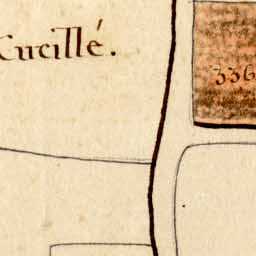 Cucillé.
336